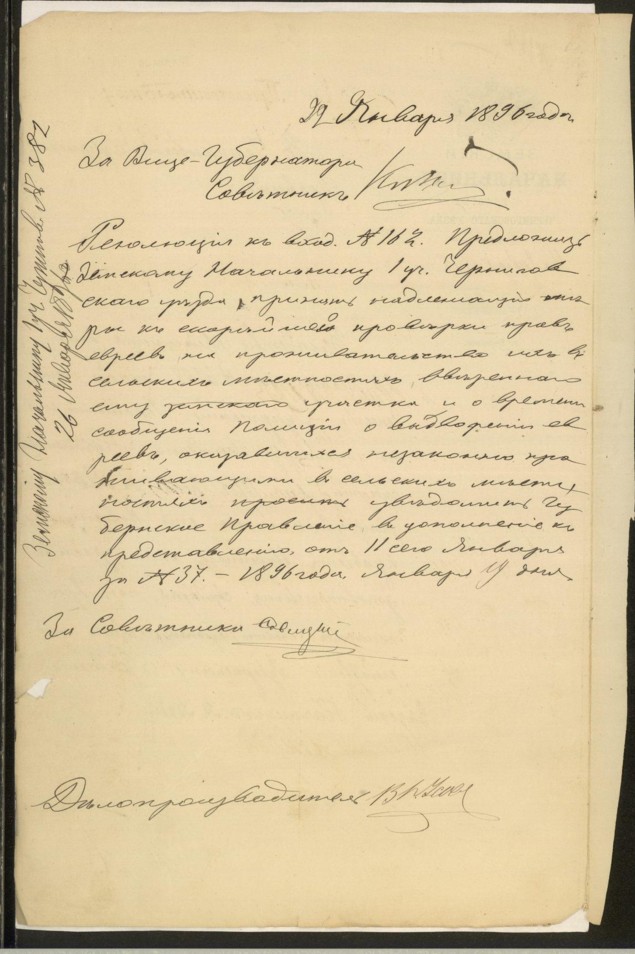 Января 1896 года.
За Вице-Губернатора
Советникъ
Резолюція къ вход. № 162. Предложить
Земскому Начальнику 1 уч. Чернигов
скаго уѣзда, принять надлежащія мѣ
ры къ скорѣйшей провѣрки правъ
евреевъ на проживательство ихъ въ
сельскихъ мѣстностяхъ, ввѣреннаго
ему земскаго участка и о времени
сообщенія Полиціи о выдвореніи ев
реевъ, оказавшихся незаконно про
живающими въ сельскихъ мѣст
ностяхъ просить увѣдомить Гу
бернское Правленіе въ дополненіе къ
представленію, отъ 11 сего Января
за № 37. – 1896 года. Января 19 дня
За Совѣтника
Дѣлопроизводитель
Земскому Начальнику 1 уч. Черниг. № 382
26 Января 1896